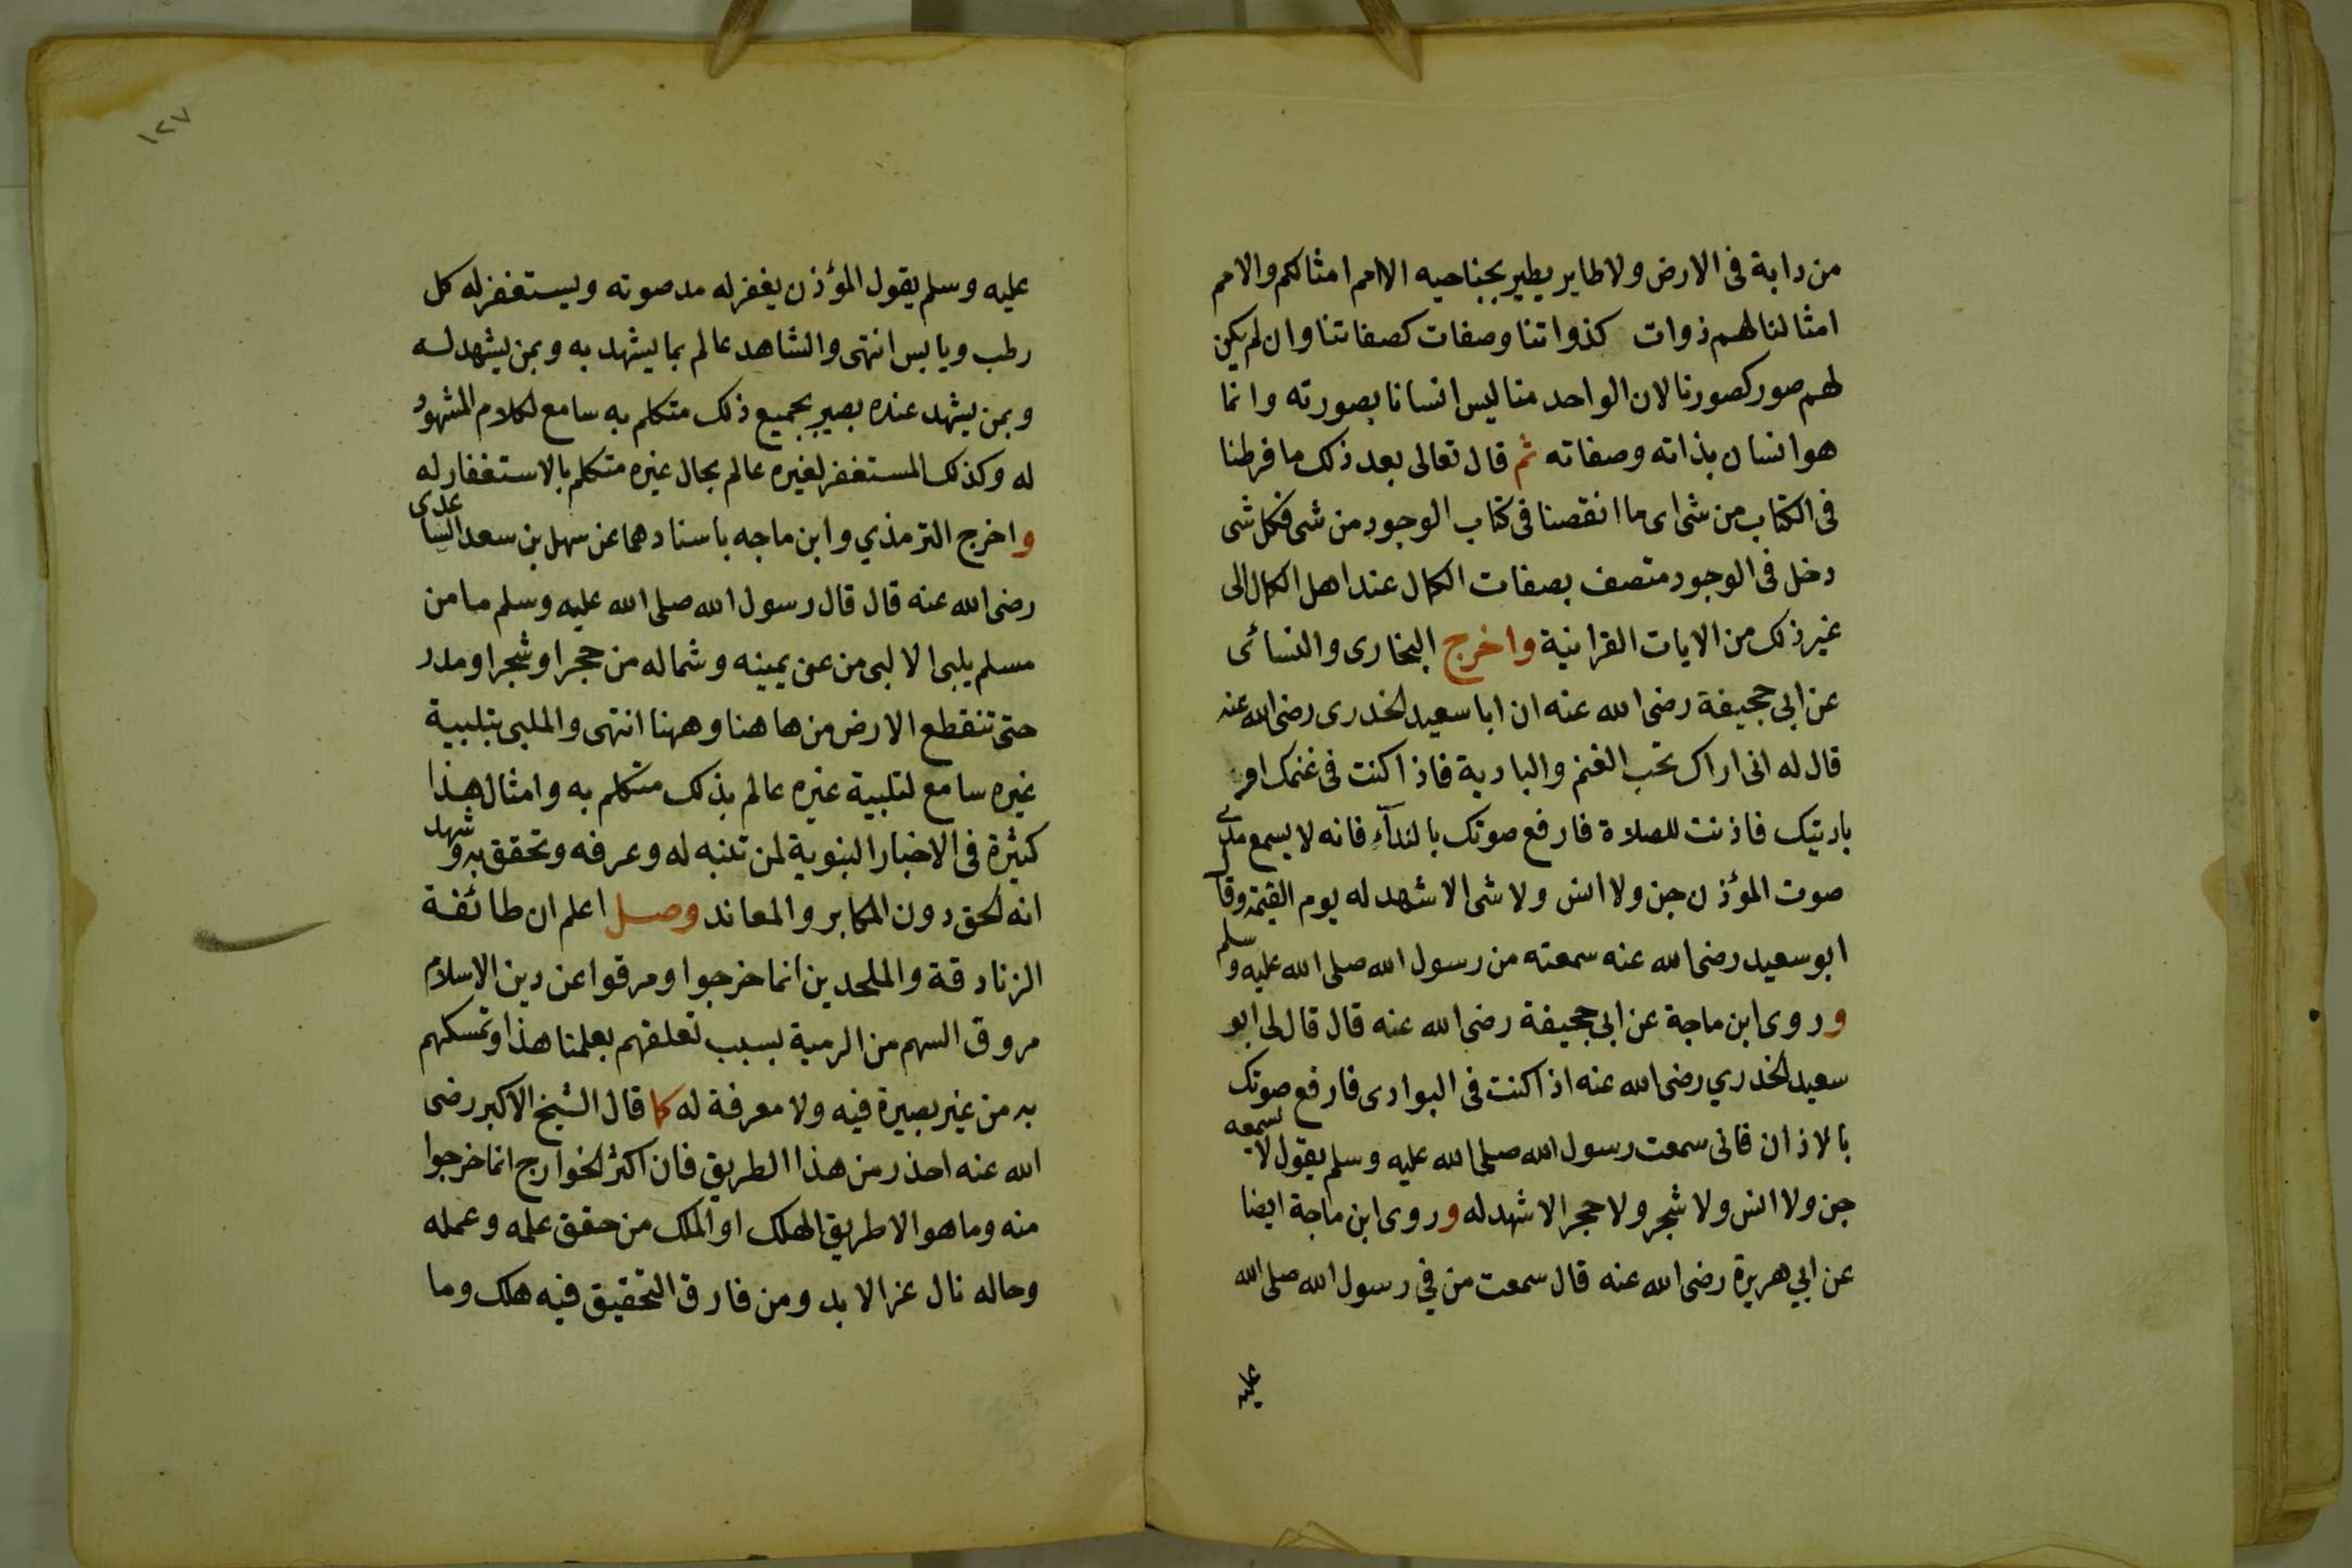 من دابة فى الارض ولا طاير يطير بجناحيه الا امم امثالكم والامم
امثالنا لهم ذوات كذواتنا وصفات كصفاتنا وان لم يكن
لهم صور كصورنا لان الواحد منا ليس انسانا بصورته وانما
هو انسان بذاته وصفاته ثم قال تعالى بعد ذلك ما فرطنا
فى الكتاب من شى اى ما انقصنا فى كتاب الوجود من شى فكل شى
دخل فى الوجود متصف بصفات الكمال عند اهل الكمال الى
غير ذلك من الايات القرانية واخرج البخارى والنسائى
عن ابي جحيفة رضى الله عنه ان ابا سعيد الخدرى رضى الله عنه
قال له انى اراك تحب الغنم والبادية فاذا كنت فى غنمك او
باديتك فاذنت للصلاة فارفع صوتك بالندآء فانه لا يسمع مدى
صوت المؤذن جن ولا انس ولا شى الا شهد له يوم القيمة وقال
ابو سعيد رضى الله عنه سمعته من رسول الله صلى الله عليه وسلم
وروى ابن ماجة عن ابي جحيفة رضى الله عنه قال قال لى ابو
سعيد الخدري رضى الله عنه اذا كنت فى البوادى فارفع صوتك
بالاذان فانى سمعت رسول الله صلى الله عليه وسلم يقول لا يسمعه
جن ولا انس ولا شجر ولا حجر الا شهد له وروى ابن ماجة ايضا
عن ابي هريرة رضى الله عنه قال سمعت من في رسول الله صلى الله
عليه
١٢٧
عليه وسلم يقول المؤذن يغفر له مد صوته ويستغفر له كل
رطب ويابس انتهى والشاهد عالم بما يشهد به وبمن يشهد له
وبمن يشهد عنده بصير بجميع ذلك متكلم به سامع لكلام المشهود
له وكذلك المستغفر لغيره عالم بحال غيره متكلم بالاستغفار له
واخرج الترمذي وابن ماجه باسنادهما عن سهل بن سعد الساعدى
رضى الله عنه قال قال رسول الله صلى الله عليه وسلم ما من
مسلم يلبى الا لبى من عن يمينه وشماله من حجر او شجر او مدر
حتى تنقطع الارض من هاهنا وههنا انتهى والملبى بتلبية
غيره سامع لتلبية غيره عالم بذلك متكلم به وامثال هذا
كثيرة فى الاخبار النبوية لمن تنبه له وعرفه وتحقق به وشهد
انه الحق دون المكابر والمعاند وصل اعلم ان طائفة
الزنادقة والملحدين انما خرجوا ومرقوا عن دين الاسلام
مروق السهم من الرمية بسبب تعلقهم بعلمنا هذا وتمسكهم
به من غير بصيرة فيه ولا معرفة له كما قال الشيخ الاكبر رضى
الله عنه احذر من هذا الطريق فان اكثر الخوارج انما خرجوا
منه وما هو الا طريق الهلك او الملك من حقق علمه وعمله
وحاله نال عز الابد ومن فارق التحقيق فيه هلك وما